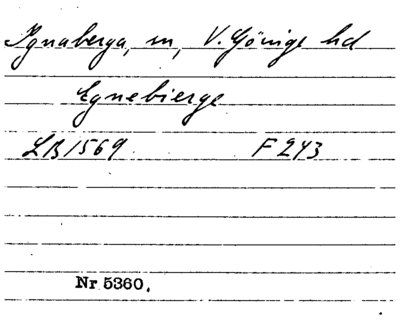 Ignaberga, sn, V. Göinge hd
Egnebierge
LB 1569 F 243
Nr 5360.